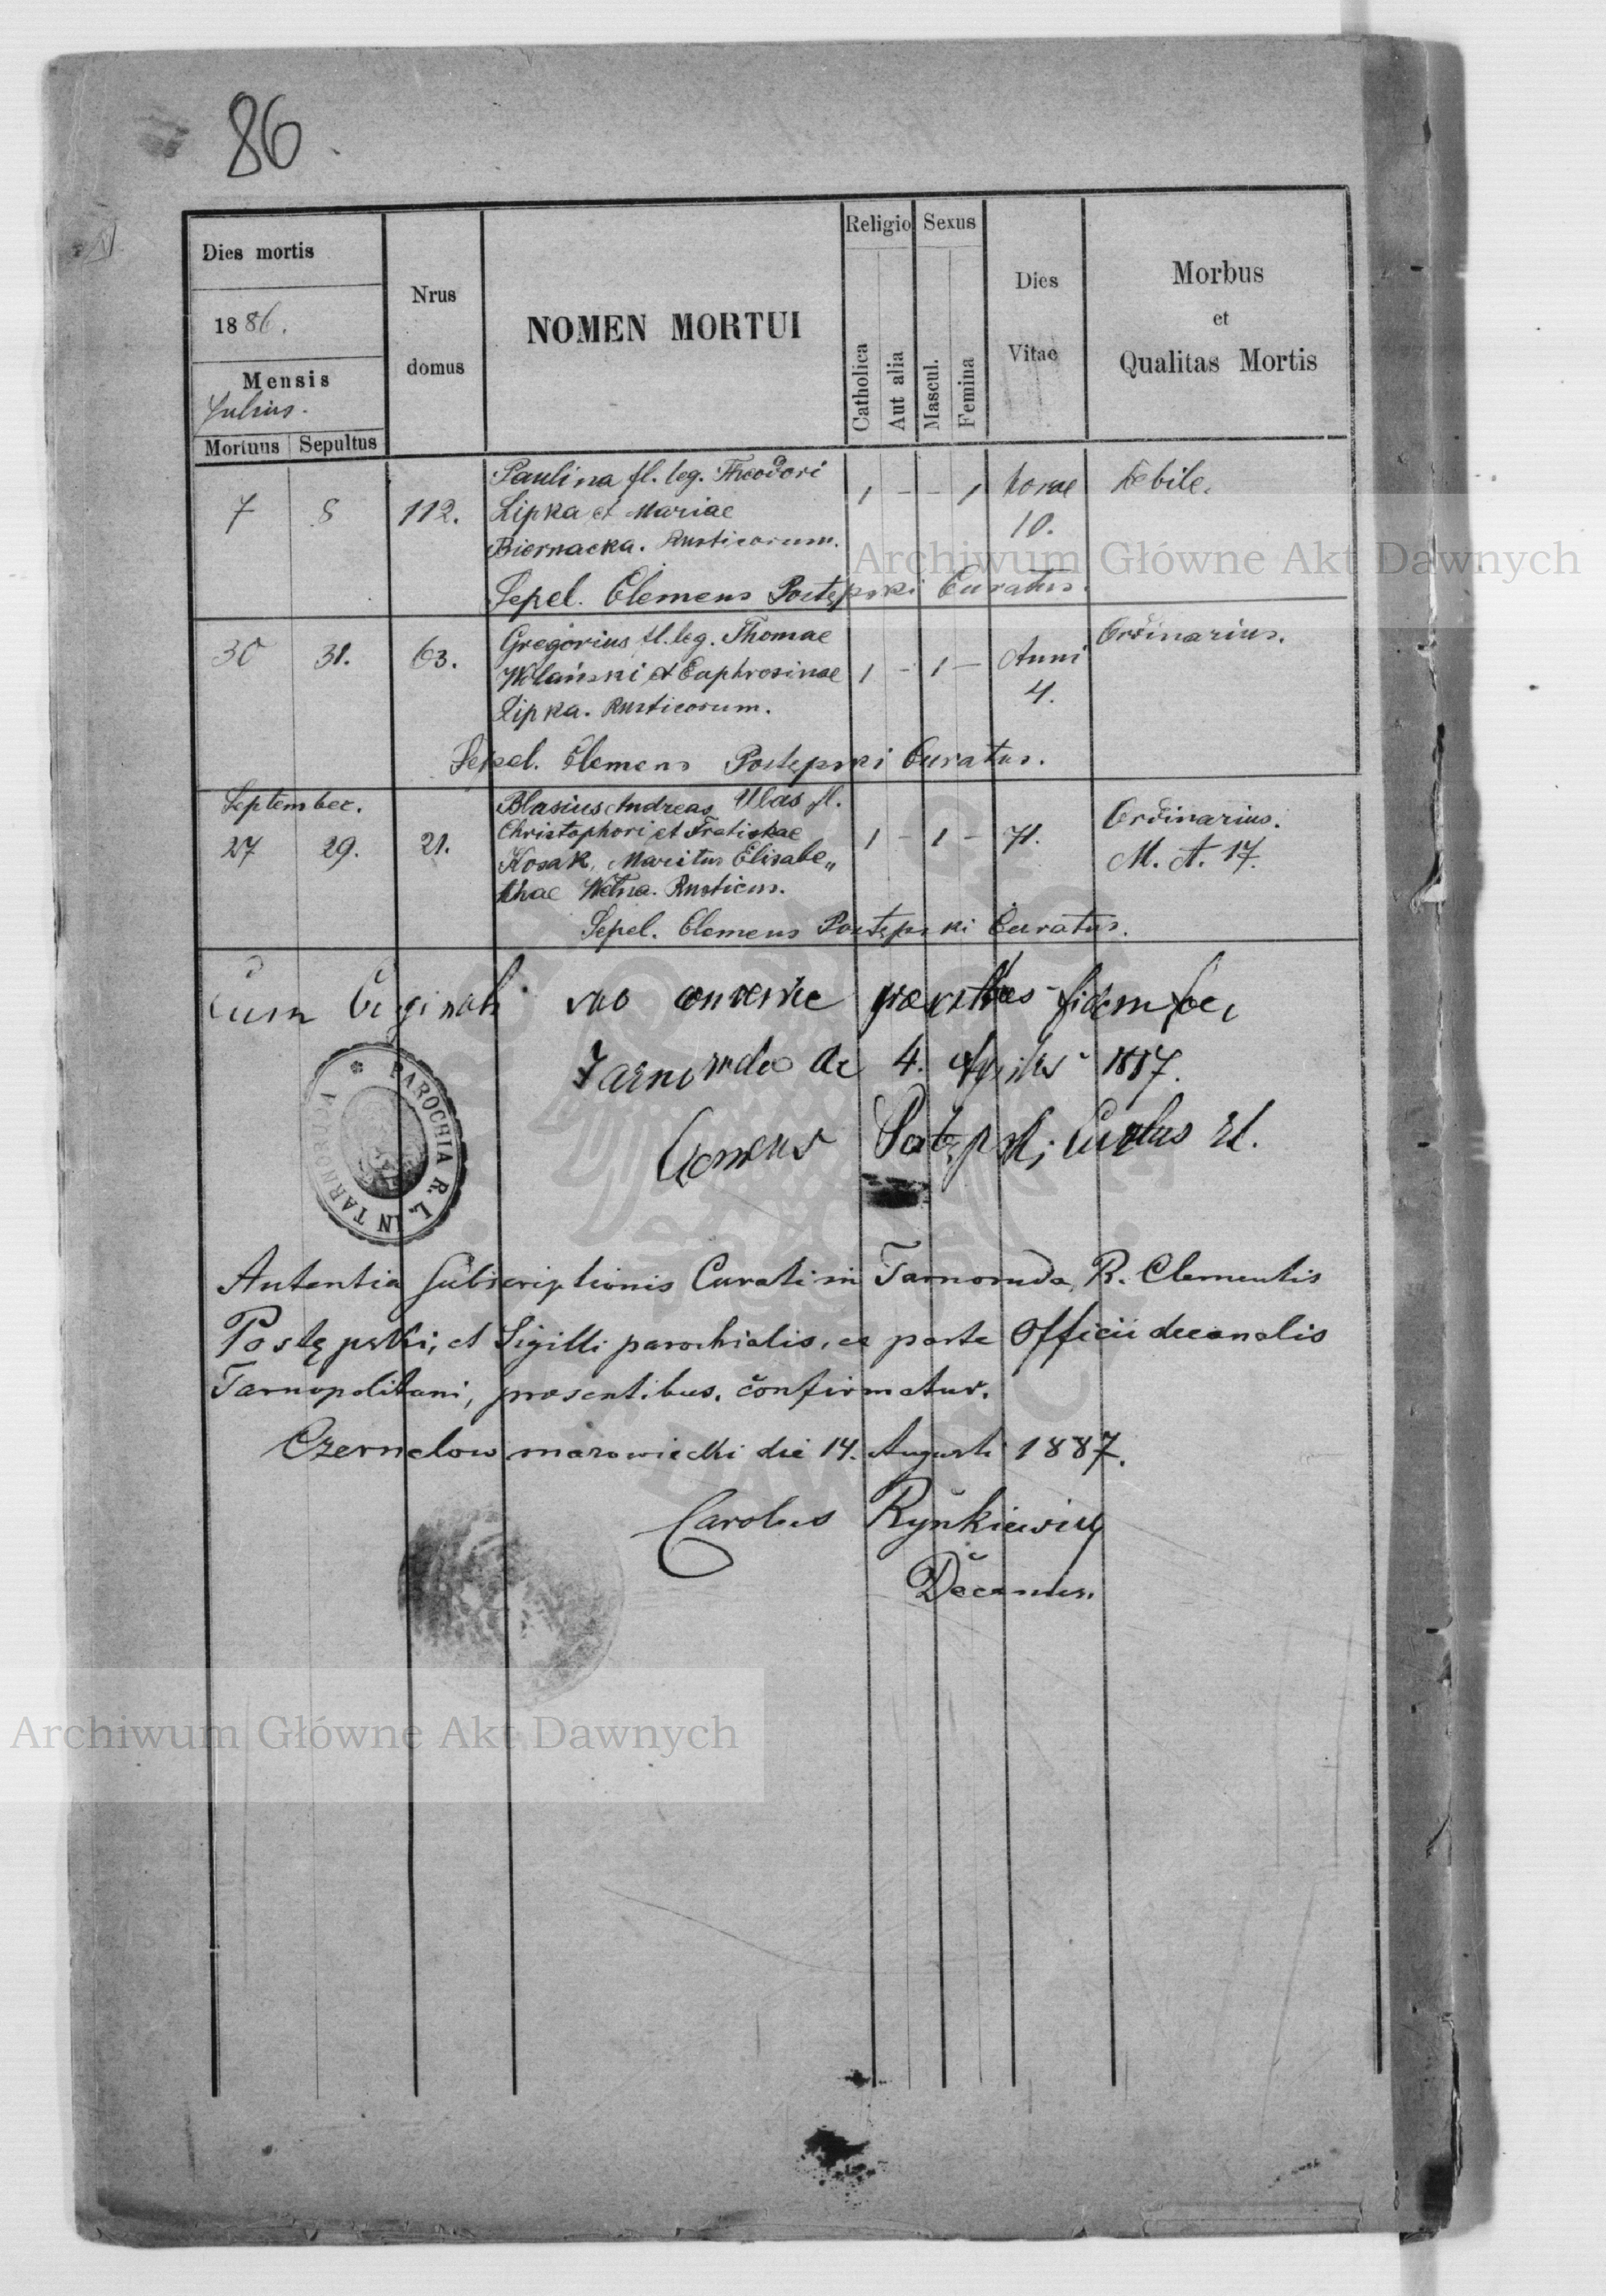 86
Dies mortis
1886.
Mensis
Julius.
Mortuus Sepultus
Nrus
domus
NOMEN MORTUI
Religio
Catholica
Aut alia
Sexus
Mascul.
Femina
Dies
Vitae
Morbus
et
Qualitas Mortis
Paulina fl. leg. Theodori
7 8 112. Lipka et Mariae 1 - - 1 horae Debile.
Biernacka. Rusticorum. 10.
Sepel. Clemens Postępski Curatus.
Gregorius fl. leg. Thomae Ordinarius.
30 31. 63. Wolański et Euphrosinae 1 - 1 - Anni
Lipka. Rusticorum. 4.
Sepel. Clemens Postępski Curatus.
September. Blasius Andreas Ulas fl.
27 29. 21. Christophori et Fratiskae 1 - 1 - 71. Ordinarius.
Kosak, Maritus Elisabe„ M. A. 17.
thae Rusticus.
Sepel. Clemens Postępski Curatus.
Cum Originali suo
Tarnoruda de 4. Aprilis 1887.
Clemens Postępski Curatus
PAROCHIA R. L. IN TARNORUDA
Autentia subscriptionis Curati in Tarnoruda, R. Clementis
Postępski, et Sigilli parochialis, ex parte Officii decanalis
Tarnopolitani, praesentibus confirmatur.
Czernelow mazowiecki die 14. Augusti 1887.
Carolus Rynkiewicz
Decanus.
Archiwum Główne Akt Dawnych
Archiwum Główne Akt Dawnych